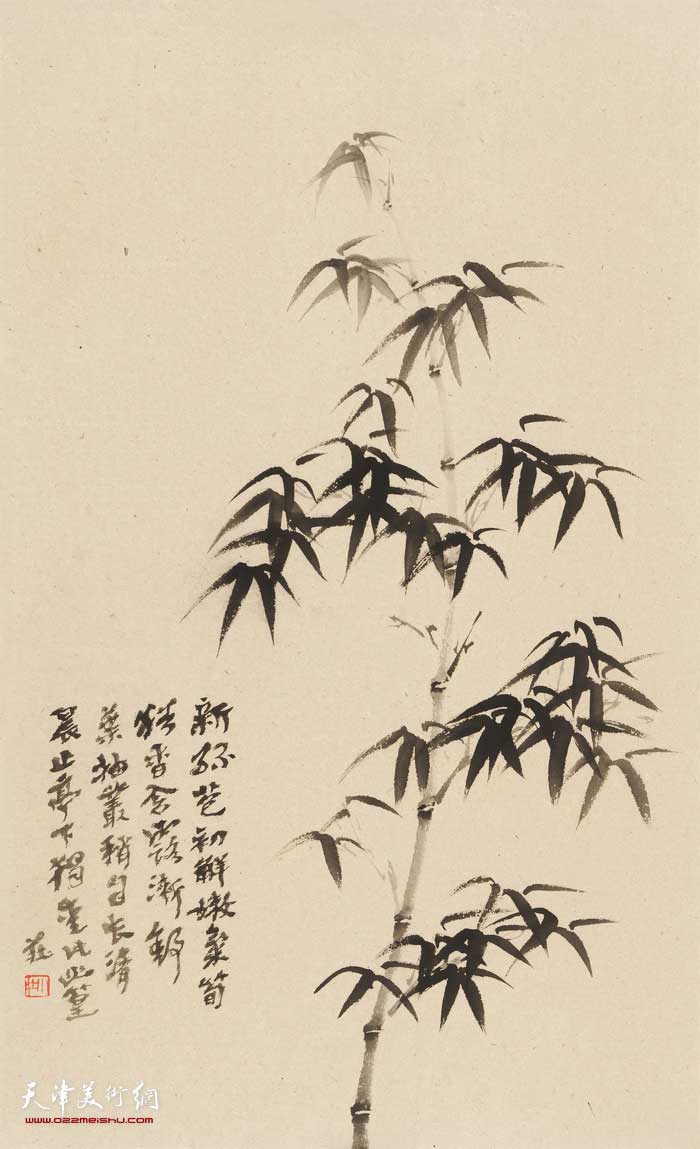 新綠苞初解嫩氣筍
猶香含露漸舒
葉抽叢稍自長清
晨止亭下獨愛此幽篁
天津美術網
www.022meishu.com